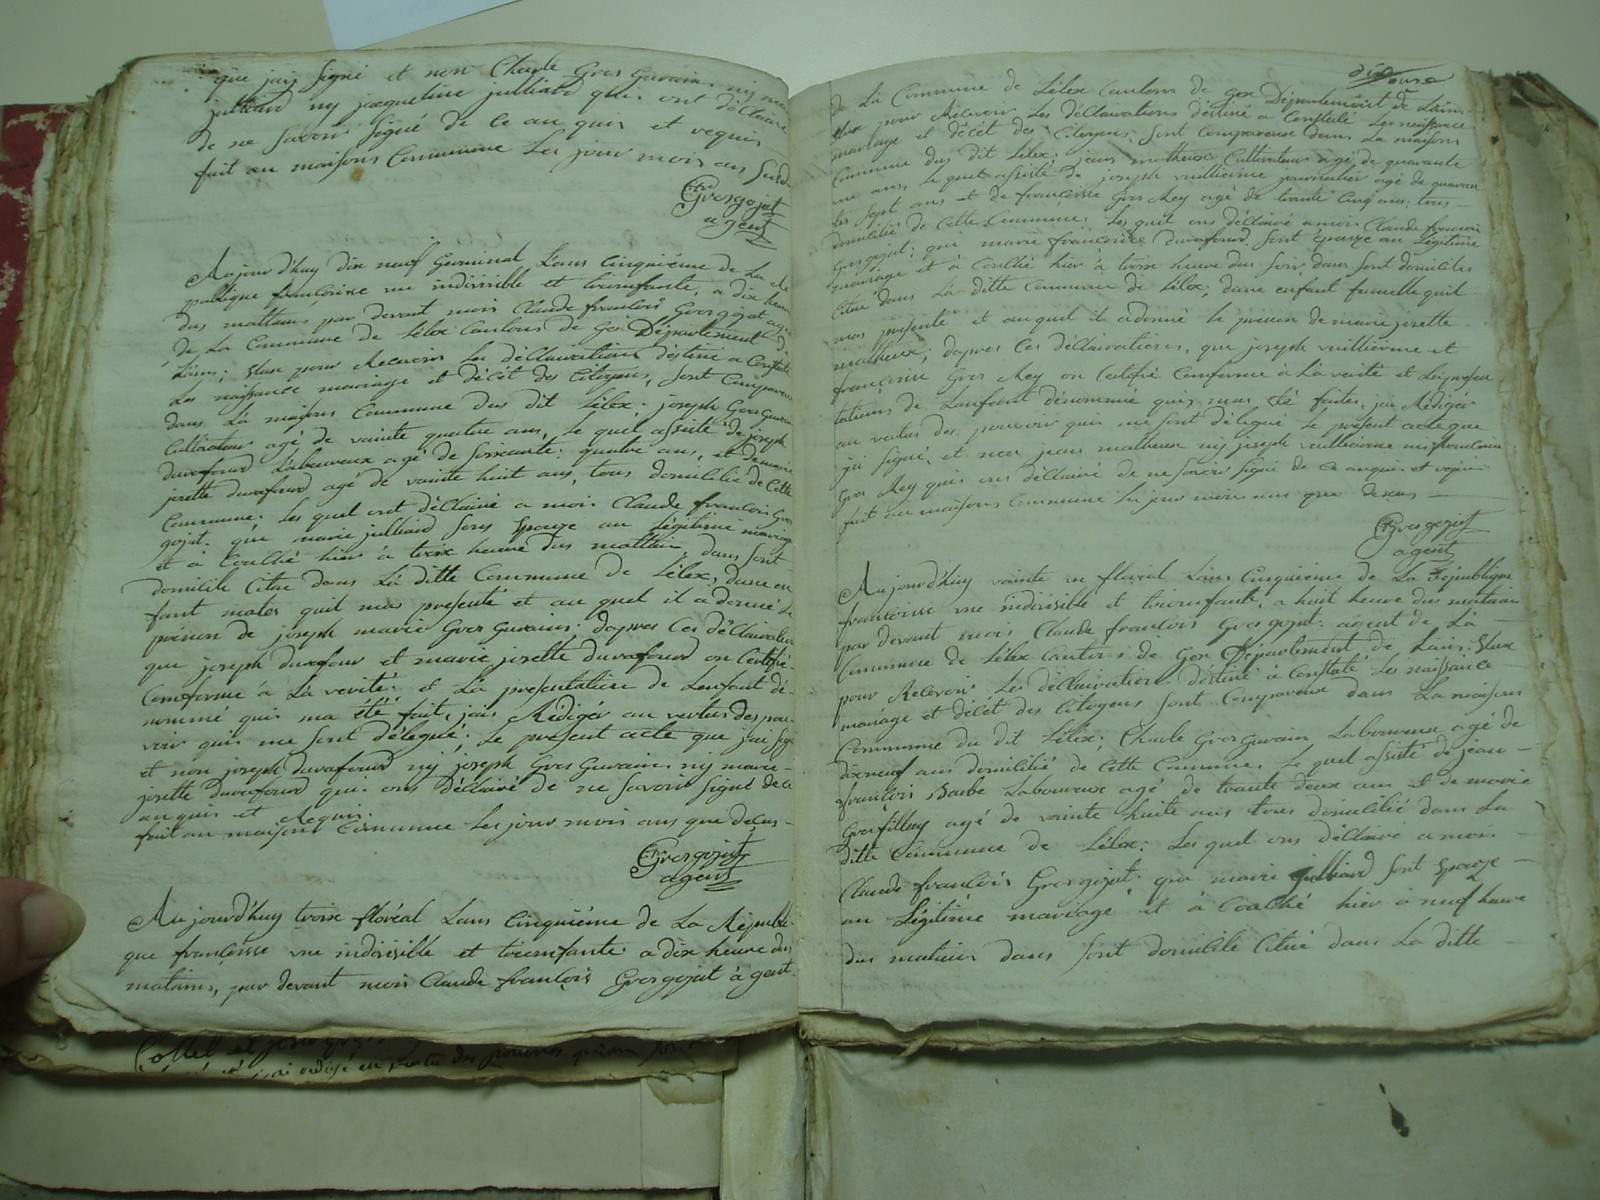 que jais signé et non Charle Gros Gurain ny ma
julliard ny jacqueline julliard quis ont déclaire
de ne savoir signé de ce au quis et requis
fait au maisons Commune les jour mois ans susd
Grosgojat
agent
Aujourd'huy dix neuf Germinal Lans Cinquiéme de La Re
publique francoisse une indivisible et triomfante, a dix heure
dus mattains par devant mois Claude francois Grosgojat agen
de La Commune de Lélex Cantons de Gex Département d
Lains; Elux pour Recevoir les déClairations déstiné a Constaté
Les naissance mariage et décét des Citoyens, sont Compareux
dans La maisons Commune dus dit Lélex; joseph Gros Gurain
Cultivateur agé de vainte quattre ans, le quel assisté de joseph
duraffourd Laboureux agé de soixante quatre ans, et de marie
josette duraffourd agé de vainte huit ans, tous domicilié de Cette
Commune; les quel ont déClairé a mois Claude francois Gros
gojat. que marie julliard sons Epouze au Légitime mariage
et à Couché hier à troix heure dus mattain, dans sont
domicile Citué dans La ditte Commune de Lélex, dune en
fant males quil ma presenté et au quel il a donné le
prénon de joseph marie Gros Gurain; dapres Ces déClairation
que joseph duraffour et marie josette duraffourd on Certifié
Comforme à La verité; et La presentation de Lenfant dé-
nommé quis ma été faite, jais Rédigér au vertus des pou-
voir quis me sont délegué; le present acte que jai sign
et non joseph duraffourd ny joseph Gros Gurain ny marie
josette duraffourd qui ons déClairé de ne savoir signé de Ce
au quis et Requis.
fait au maisons Commune les jour mois ans que desus -
Grosgojat
agent
Aujourd'huy troix floréal Lans Cinquiéme de La Répubi-
que francoisse une indivisible et trionfante a dix heure dus
matains, par devant mois Claude francois Grosgojat agent
douze
de La Commune de Lélex Cantons de Gex Département de Lains
Elux pour Recevoir les déClairations déstiné a Constaté les naissance
mariage et décét des Citoyens, sont Compareux dans La maisons
Commune dus dit Lélex; jean matheux Cultivateur agé de quarante
une ans, le quel assisté de joseph vuillierme journalier agé de quaran
tes sept ans et de francoise Gros Rey agé de trante Cinq ans; tous
domicilié de Cette Commune. les quel ons déClairé a mois Claude francois
Grosgojat; que marie francoise duraffourd sont épouze au Légitime
mariage et à Couché hier à troix heure dus soir, dans sont domicile
Citué dans La ditte Commune de Lélex; dune enfant femelle quil
mas présenté et au quel il a donné le prénon de marie josette
matheux; dapres Ces déClairations, que joseph vuillierme et
francoise Gros Rey on Certifié Comforme à La verité et La presen
tations de Lenfant dénommé quis mas été faite, jai Rédigér
au vertus des pouvoir quis me sont délegué le présent acte que
jai signé, et non jean matheux ny joseph vuillierme ni francoise
Gros Rey quis ons déClairé de ne savoir signé de Ce auquis et requis
fait au maisons Commune les jour mois ans que desus -
Grosgojat
agent
Aujourd'huy vainte un floréal Lans Cinquiéme de La République
francoisse une indivisible et trionfante, a huit heure dus matain
par devant mois Claude francois Grosgojat agent de La -
Commune de Lélex Canton de Gex Département de Lains. Elux
pour Recevoir les déClairation déstiné à Constaté les naissance
mariage et décét des Citoyens sont Compareux dans La maisons
Commune du dit Lélex; Charle Gros Gurain Laboureux agé de
dixneuf ans domicilié de Cette Commune. le quel assisté de jean -
francois Barbe Laboureux agé de trante deux ans et de marie
Grosfilley agé de vainte huite ans tous domicilié dans La
ditte Commune de Lélex; Les quel ons déClairé a mois -
Claude francois Grosgojat. que marie julliard sont Epouze -
au Légitime mariage et à Couché hier à neuf heure
dus matain dans sont domicile Citué dans La ditte -